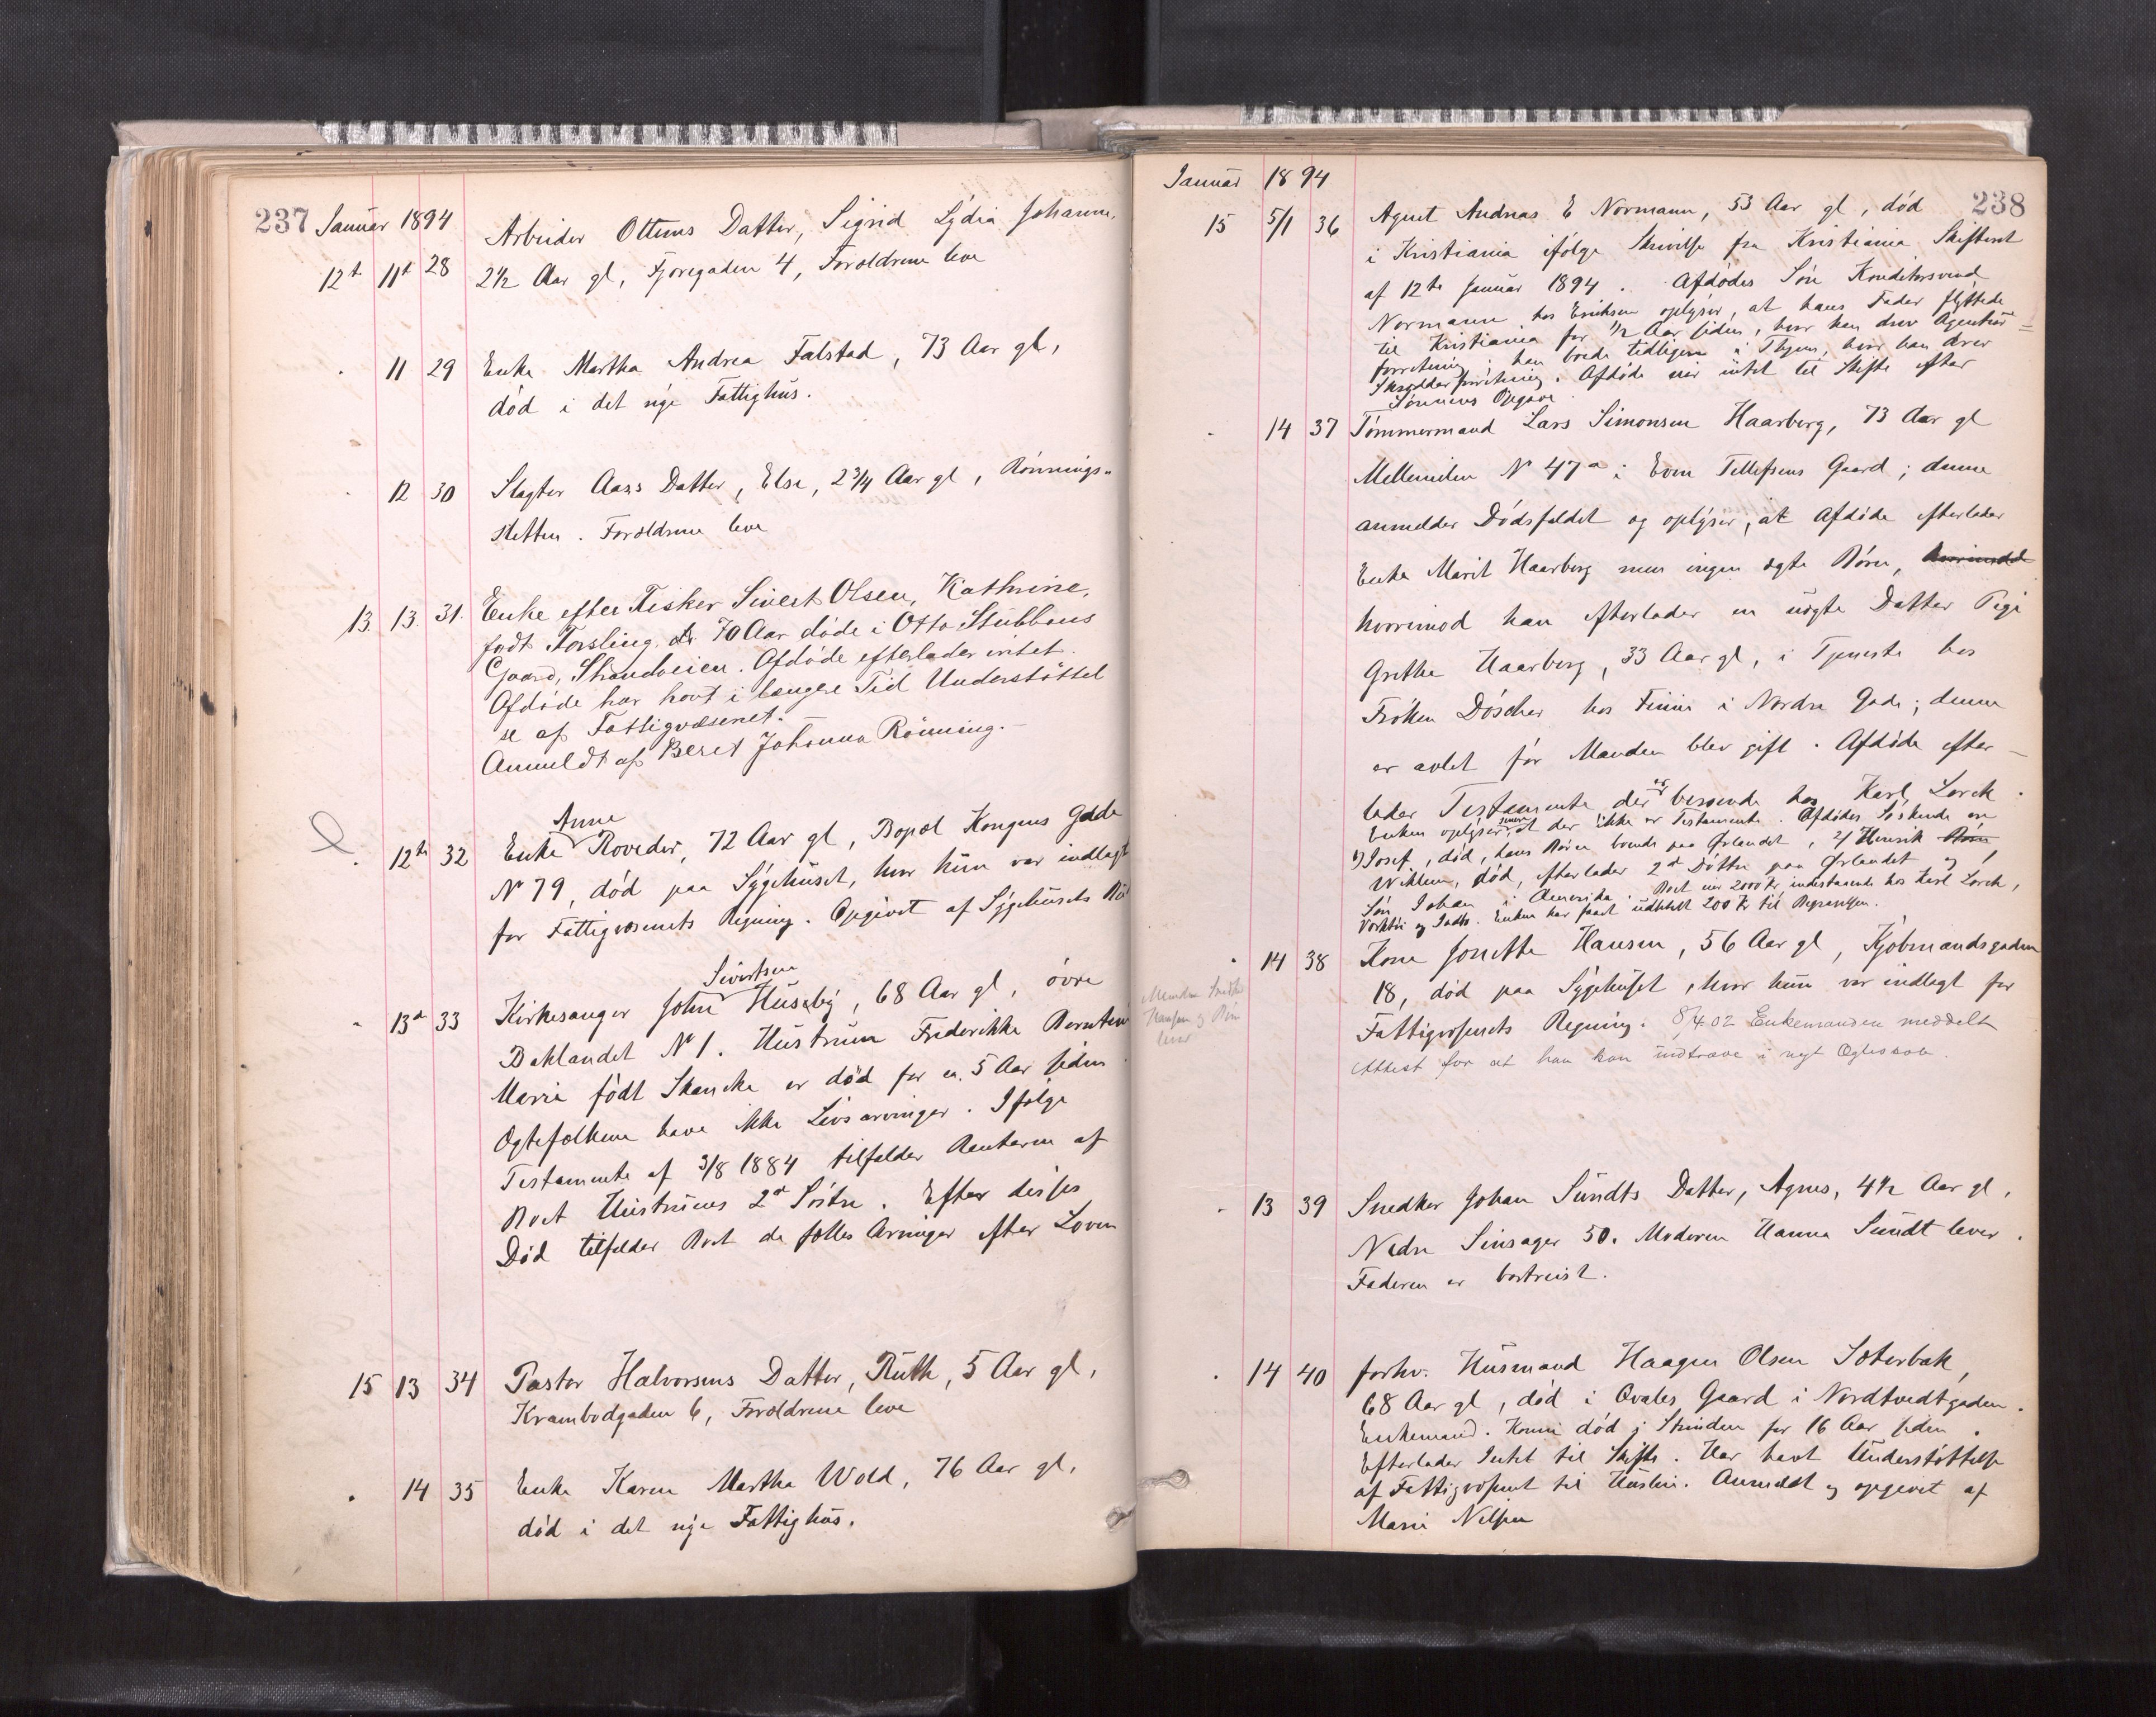 237 Januar 1894
Arbeider Ottems Datter, Sigrid Lydia Johanne,
12te 11te 28 2½ Aar gl, Fjoregaden 4, Forældrene leve
11 29 Enke Martha Andrea Falstad, 73 Aar gl,
død i det nye Fattighus.
12 30 Slagter Aass Datter, Else, 2¾ Aar gl, Rønnings-
sletten. Forældrene leve
13. 13. 31. Enke efter Fisker Sivert Olsen, Kathrine,
født Forsling, 70 Aar døde i Otto Stubbans
Gaard, Strandveien. Afdøde efterlader intet.
Afdøde har havt i længere Tid Understøttel
se af Fattigvæsenet.
Anmeldt af Beret Johanna Rønning.
Anne
12te 32 Enke Roveder, 72 Aar gl, Bopæl Kongens Gade
No 79, død paa Sygehuset, hvor hun var indlagt
for Fattigvæsenets Regning. Opgivet af Sygehusets
Sivertsen
13de 33 Kirkesanger John Huseby, 68 Aar gl, øvre
Baklandet No 1. Hustruen Frederikke Berntine
Marie født Skancke er død for ca. 5 Aar siden.
Ægtefolkene have ikke Livsarvinger. Ifølge
Testamente af 3/8 1884 tilfalder Renterne af
Boet Hustruens 2de Søstre. Efter disses
Død tilfalder Boet de fælles Arvinger efter Loven
15 13 34 Pastor Halvorsens Datter, Ruth, 5 Aar gl,
Krambodgaden 6, Forældrene leve
14 35 Enke Karen Martha Wold, 76 Aar gl,
død i det nye Fattighus.
Januar 1894
238
15 5/1 36 Agent Andreas E Normann, 53 Aar gl, død
i Kristiania ifølge Skrivelse fra Kristiania Skifteret
af 12te Januar 1894. Afdødes Søn Konditorsvend
Normann hos Erichsen oplyser, at hans Fader flyttede
til Kristiania for ½ Aar siden, hvor han drev Agentur-
forretning; han boede tidligere i Thjem, hvor han drev
Skrædderforretning. Afdøde eier intet til Skifte efter
Sønnens Opgave.
14 37 Tømmermand Lars Simonsen Haarberg, 73 Aar gl
Mellemilen No 47a i Even Tellefsens Gaard; denne
anmelder Dødsfaldet og oplyser, at Afdøde efterlader
Enke Marit Haarberg men ingen ægte Børn,
hvorimod han efterlader en uægte Datter Pige
Grethe Haarberg, 33 Aar gl, i Tjeneste hos
Frøken Døscher hos Finne i Nordre Gade; denne
er avlet før Manden blev gift. Afdøde efter-
lader Testamente der er beroende hos Karl Lorck.
Enken oplyser senere at der ikke er Testamente. Afdødes Søskende ere
1) Josef, død, hans Børn boende paa Ørlandet, 2/ Henrik
Wiklem, død, efterlader 2de Døttre paa Ørlandet og 1
Søn Johan i Amerika. Boet eier 2000 Kr, indestaaende hos Karl Lorck,
Værktøi og Indbo. Enken har faaet udbetalt 200 Kr til Begravelsen.
14 38 Kone Jonette Hansen, 56 Aar gl, Kjøbmandsgaden
18, død paa Sygehuset, hvor hun var indlagt for
Fattigvæsenets Regning. 8/4.02 Enkemanden meddelt
Attest for at han kan indtræde i nyt Ægteskab.
Manden Snedker
Hansen og Børn
lever
13 39 Snedker Johan Sundts Datter, Agnes, 4½ Aar gl,
Nedre Singsager 50. Moderen Hanna Sundt lever.
Faderen er bortreist.
14 40 forhv. Husmand Haagen Olsen Sæterbak,
68 Aar gl, død i Qvales Gaard i Nordtvedtgaden.
Enkemand. Konen død i Strinden for 16 Aar siden.
Efterlader Intet til Skifte. Har havt Understøttelse
af Fattigvæsenet til Husleie. Anmeldt og opgivet af
Marie Nilsen